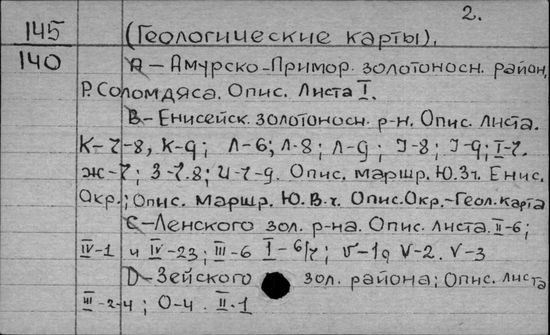 2.
145 (Геологические карты),
140 A – Амурско-Примор. золотоносн. район,
Р. Соломдяса. Опис. Листа I.
B – Енисейск. золотоносн. р-н. Опис. Листа.
К-7-8, К-9; Л-6; Л-8; Л-9; I-8; I-9; I-7.
ж-7; З-7.8; И-7-9. Опис. маршр. Ю.Зч. Енис.
Окр.; Опис. Маршр. Ю.В.ч. Опис.Окр.-Геол.карта
C – Ленского зол. р-на. Опис. Листа. II-6;
IV-1 и IV-23; III-6 I-6/7; V-1q V-2. V-3
D – Зейского зол. района; Опис. листа
III-2-4; О-4. II.1